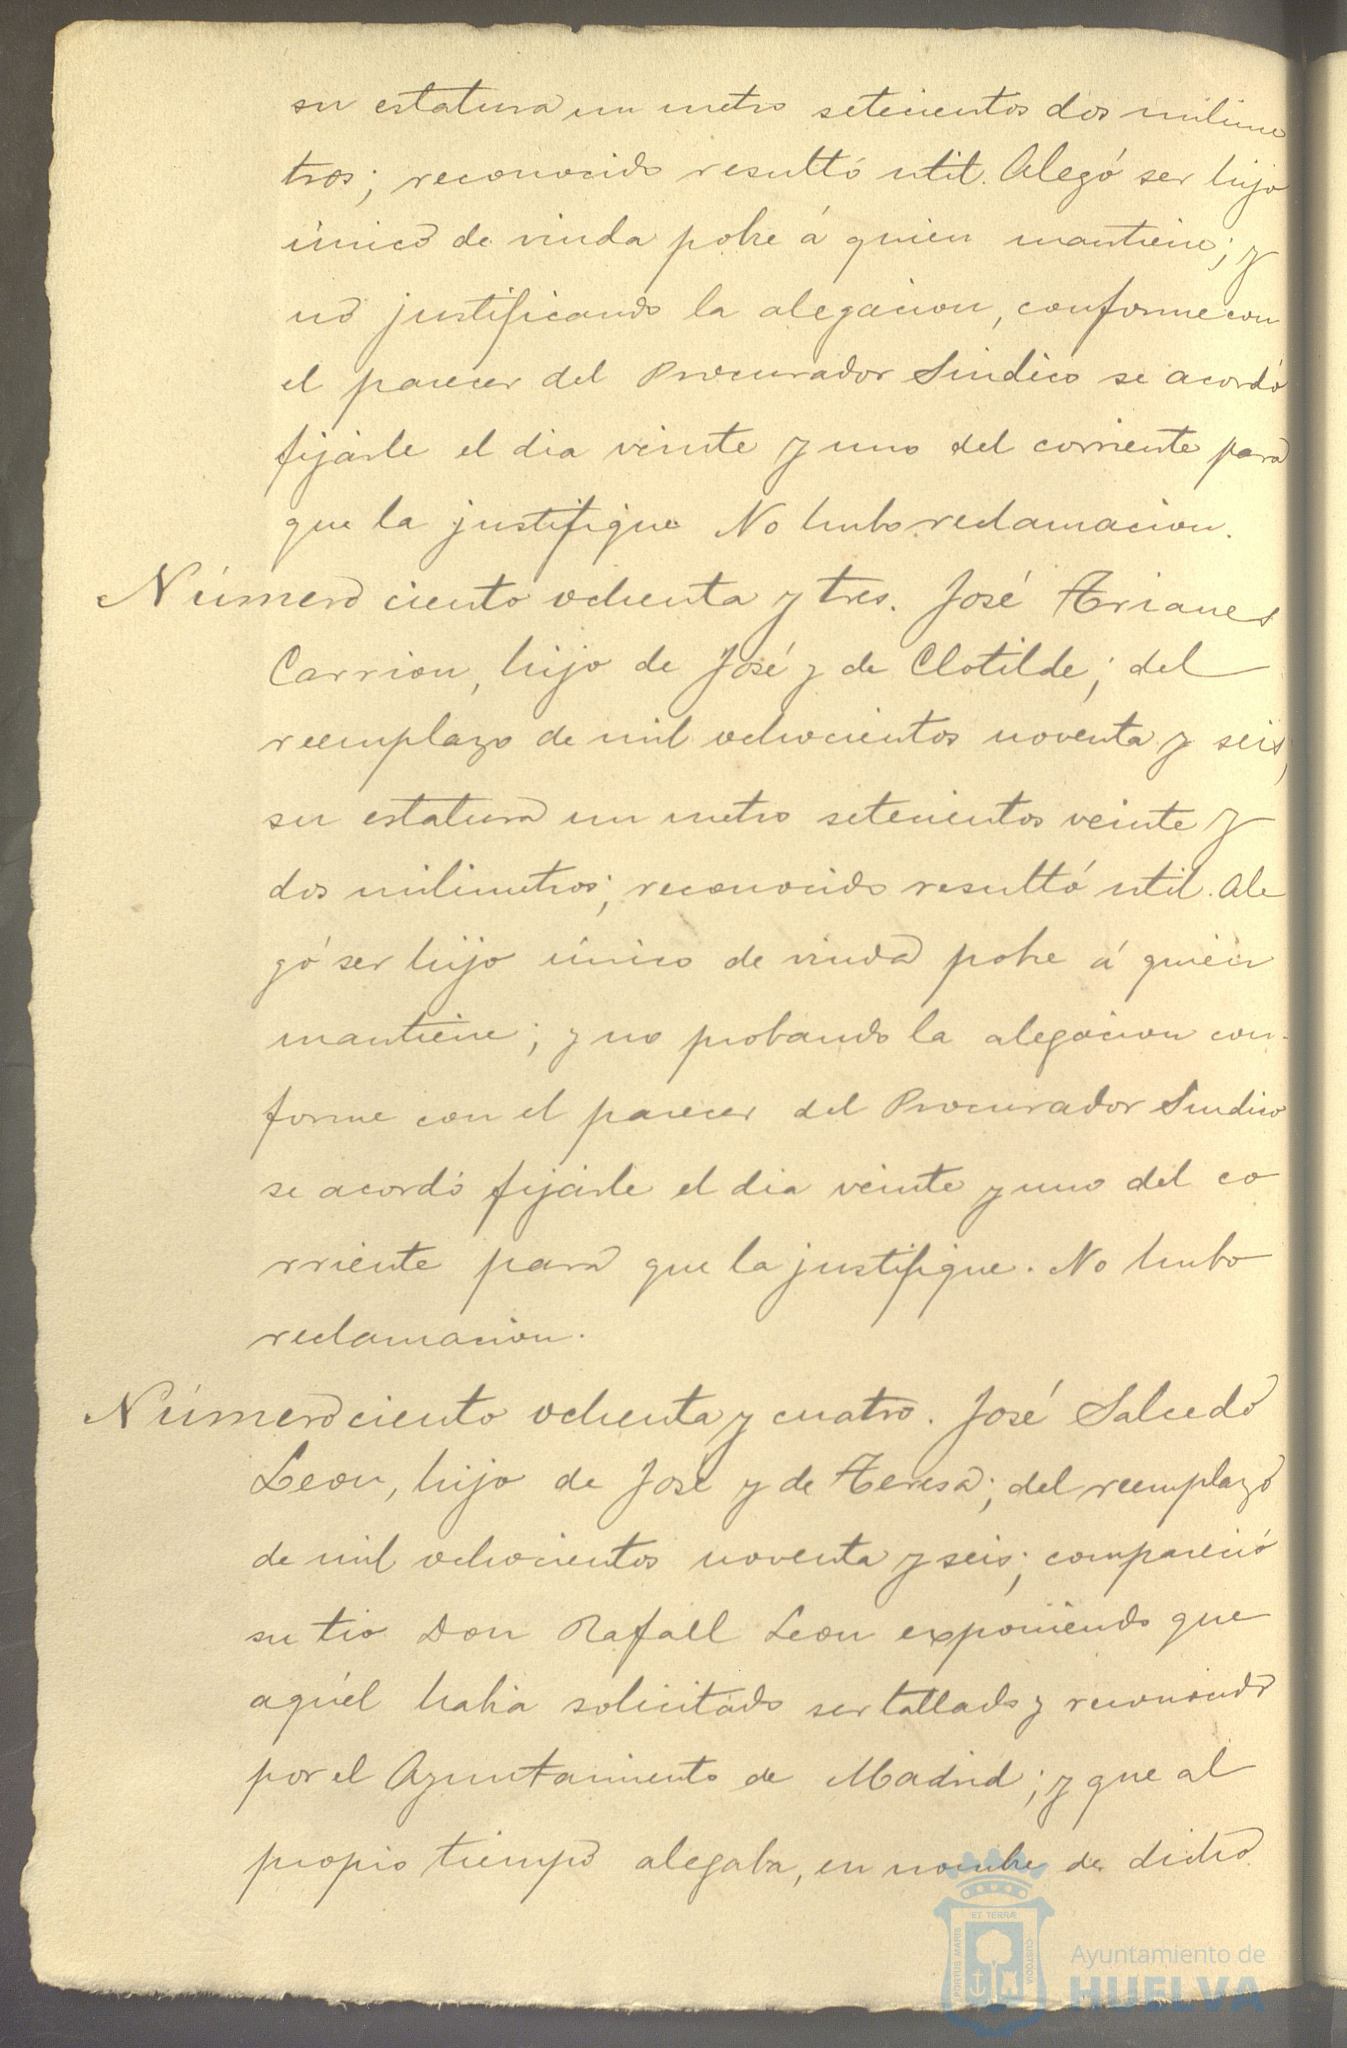 su estatura un metro setecientos dos milime
tros; reconocido resultó util. Alegó ser hijo
único de viuda pobre á quien mantiene; y
no justificando la alegacion, conforme con
el parecer del Procurador Sindico se acordó
fijarle el dia veinte y uno del corriente para
que la justifique No hubo reclamacion.
Número ciento ochenta y tres. José Arianes
Carrion, hijo de José y de Clotilde; del
reemplazo de mil ochocientos noventa y seis,
su estatura un metro setecientos veinte y
dos milimetros; reconocido resultó util. Ale
gó ser hijo único de viuda pobre á quien
mantiene; y no probando la alegacion con-
forme con el parecer del Procurador Sindico
se acordó fijarle el dia veinte y uno del co
rriente para que la justifique. No hubo
reclamacion.
Número ciento ochenta y cuatro. José Salcedo
Leon, hijo de José y de Teresa; del reemplazo
de mil ochocientos noventa y seis; compareció
su tio Don Rafaell Leon exponiendo que
aquél habia solicitado ser tallado y reconocido
por el Ayuntamiento de Madrid; y que al
propio tiempo alegaba, en nombre de dicho
ET TERRÆ
PORTUS MARIS
CUSTODIA
Ayuntamiento de
HUELVA